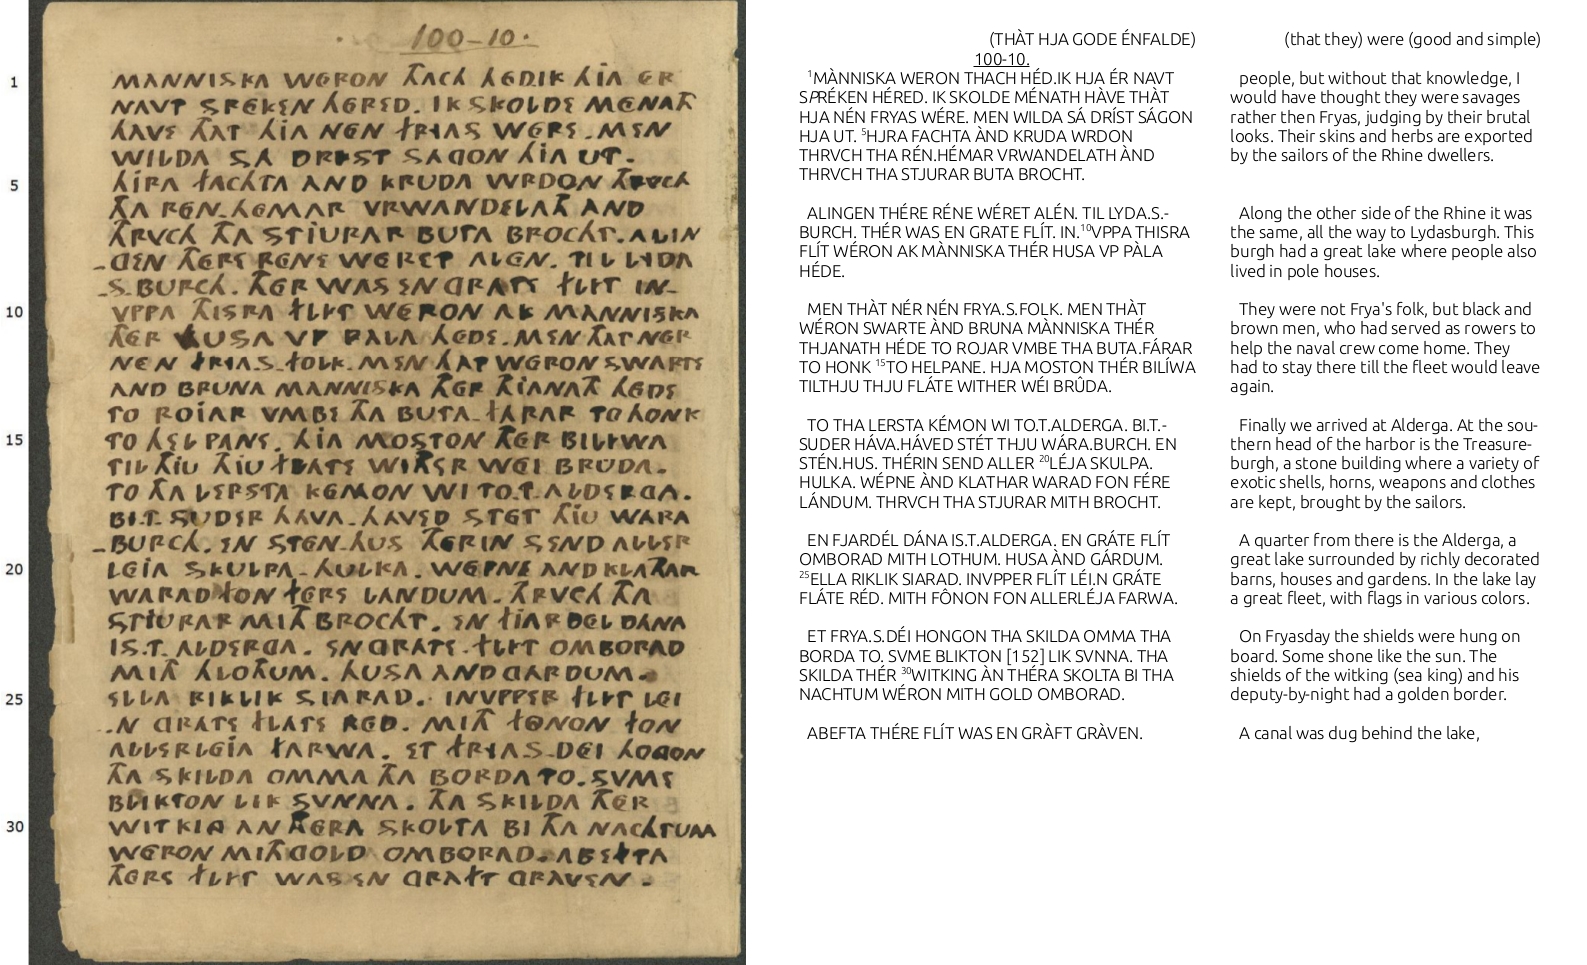 100-10.
1
5
10
15
20
25
30
MANNISKA WERON THACH HEDIK HIA ER
NAVT SPEKEN HERED. IK SKOLDE MENATH
HAVE THAT HIA NEN FRIAS WERE. MEN
WILDA SA DRIST SAGON HIA UT.
HIRA FACHTA AND KRUDA WRDON THRVCH
THA REN_HEMAR VRWANDELATH AND
THRVCH THA STIURAR BUTA BROCHT. ALIN
_GEN THERE RENE WERET ALEN. TIL LYDA
_S_BURCH. THER WAS EN GRATE FLYT IN_
VPPA THISRA FLYT WERON AK MANNISKA
THER HUSA VP PALA HEDE. MEN THAT NER
NEN FRIAS_FOLK. MEN HAT WERON SWARTE
AND BRUNA MANNISKA THER THIANATH HEDE
TO ROIAR VMBE THA BUTA_FARAR TO HONK
TO HELPANE. HIA MOSTON THER BILIWA
TIL THIU THIU FLATE WITHER WEI BRUDA.
TO THA LERSTA KEMON WI TO.T. ALDERGA.
BI.T. SUDER HAVA_HAVED STET THIU WARA
_BURCH. EN STEN_HUS THERIN SEND ALLER
LEIA SKULPA_HULKA. WEPNE AND KLATHAR
WARAD FON FERE LANDUM. THRVCH THA
STIURAR MITH BROCHT. EN FIARDEL DANA
IS.T. ALDERGA. EN GRATE FLYT OMBORAD
MITH HLOTHUM. HUSA AND GARDUM.
ELLA RIKLIK SIARAD. INVPPER FLYT LEI
_N GRATE FLATE RED. MITH FONON FON
ALLERLEIA FARWA. ET FRIAS_DEI HOGON
THA SKILDA OMMA THA BORDA TO. SVME
BLIKTON LIK SVNNA. THA SKILDA THER
WITKING AN THERA SKOLTA BI THA NACHTUM
WERON MITH GOLD OMBORAD. ABEFTA
THERE FLYT WAS EN GRAFT GRAVEN.
(THÀT HJA GODE ÉNFALDE)
100-10.
1MÀNNISKA WERON THACH HÉD.IK HJA ÉR NAVT
SPRÉKEN HÉRED. IK SKOLDE MÉNATH HÀVE THÀT
HJA NÉN FRYAS WÉRE. MEN WILDA SÁ DRÍST SÁGON
HJA UT. 5HJRA FACHTA ÀND KRUDA WRDON
THRVCH THA RÉN.HÉMAR VRWANDELATH ÀND
THRVCH THA STJURAR BUTA BROCHT.
ALINGEN THÉRE RÉNE WÉRET ALÉN. TIL LYDA.S.-
BURCH. THÉR WAS EN GRATE FLÍT. IN.10VPPA THISRA
FLÍT WÉRON AK MÀNNISKA THÉR HUSA VP PÀLA
HÉDE.
MEN THÀT NÉR NÉN FRYA.S.FOLK. MEN THÀT
WÉRON SWARTE ÀND BRUNA MÀNNISKA THÉR
THJANATH HÉDE TO ROJAR VMBE THA BUTA.FÁRAR
TO HONK 15TO HELPANE. HJA MOSTON THÉR BILÍWA
TILTHJU THJU FLÁTE WITHER WÉI BRÛDA.
TO THA LERSTA KÉMON WI TO.T.ALDERGA. BI.T.-
SUDER HÁVA.HÁVED STÉT THJU WÁRA.BURCH. EN
STÉN.HUS. THÉRIN SEND ALLER 20LÉJA SKULPA.
HULKA. WÉPNE ÀND KLATHAR WARAD FON FÉRE
LÁNDUM. THRVCH THA STJURAR MITH BROCHT.
EN FJARDÉL DÁNA IS.T.ALDERGA. EN GRÁTE FLÍT
OMBORAD MITH LOTHUM. HUSA ÀND GÁRDUM.
25ELLA RIKLIK SIARAD. INVPPER FLÍT LÉI.N GRÁTE
FLÁTE RÉD. MITH FÔNON FON ALLERLÉJA FARWA.
ET FRYA.S.DÉI HONGON THA SKILDA OMMA THA
BORDA TO. SVME BLIKTON [152] LIK SVNNA. THA
SKILDA THÉR 30WITKING ÀN THÉRA SKOLTA BI THA
NACHTUM WÉRON MITH GOLD OMBORAD.
ABEFTA THÉRE FLÍT WAS EN GRÀFT GRÀVEN.
(that they) were (good and simple)
people, but without that knowledge, I
would have thought they were savages
rather then Fryas, judging by their brutal
looks. Their skins and herbs are exported
by the sailors of the Rhine dwellers.
Along the other side of the Rhine it was
the same, all the way to Lydasburgh. This
burgh had a great lake where people also
lived in pole houses.
They were not Frya's folk, but black and
brown men, who had served as rowers to
help the naval crew come home. They
had to stay there till the fleet would leave
again.
Finally we arrived at Alderga. At the sou-
thern head of the harbor is the Treasure-
burgh, a stone building where a variety of
exotic shells, horns, weapons and clothes
are kept, brought by the sailors.
A quarter from there is the Alderga, a
great lake surrounded by richly decorated
barns, houses and gardens. In the lake lay
a great fleet, with flags in various colors.
On Fryasday the shields were hung on
board. Some shone like the sun. The
shields of the witking (sea king) and his
deputy-by-night had a golden border.
A canal was dug behind the lake,